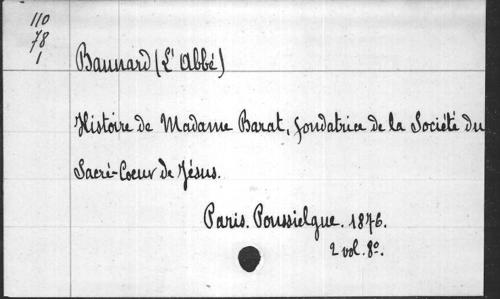 110
78
1
Baunard (L'Abbé)
Histoire de Madame Barat, fondatrice de la Société du
Sacré-Coeur de Jésus.
Paris. Poussielgue. 1876.
2 vol. 8o.